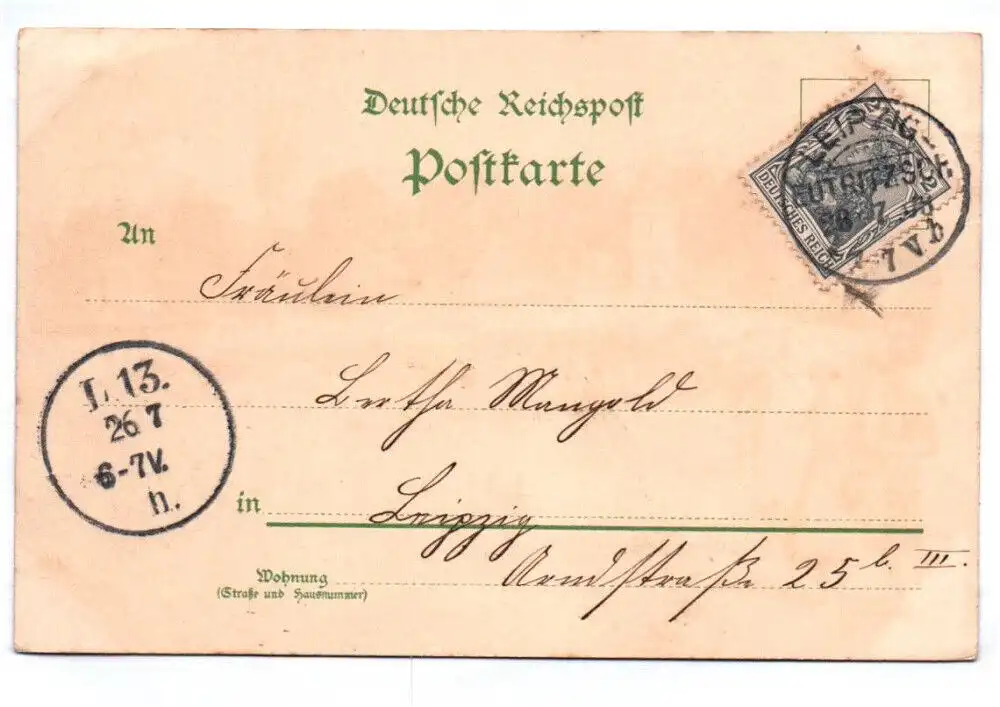 Deutsche Reichspost
Postkarte
LEIPZIG-
EUTRITZSCH
7 V b
DEUTSCHES REICH
2
An
Fräulein
Bertha Mangold
L. 13.
26 7
6-7V.
h.
in Leipzig
Wohnung Arndtstraße 25 b. III.
(Straße und Hausnummer)